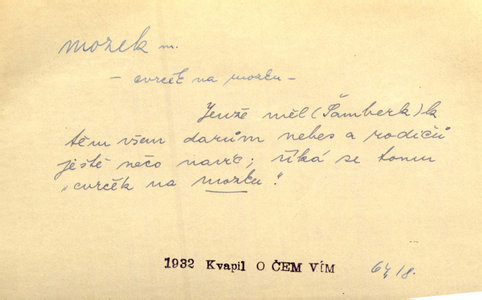 mozek m.
– cvrček na mozku –
Jenže měl (Šamberk) k
těm všem darům nebes a rodičů
ještě něco navíc; říká se tomu
„cvrček na mozku".
1932 Kvapil O ČEM VÍM 64/8.